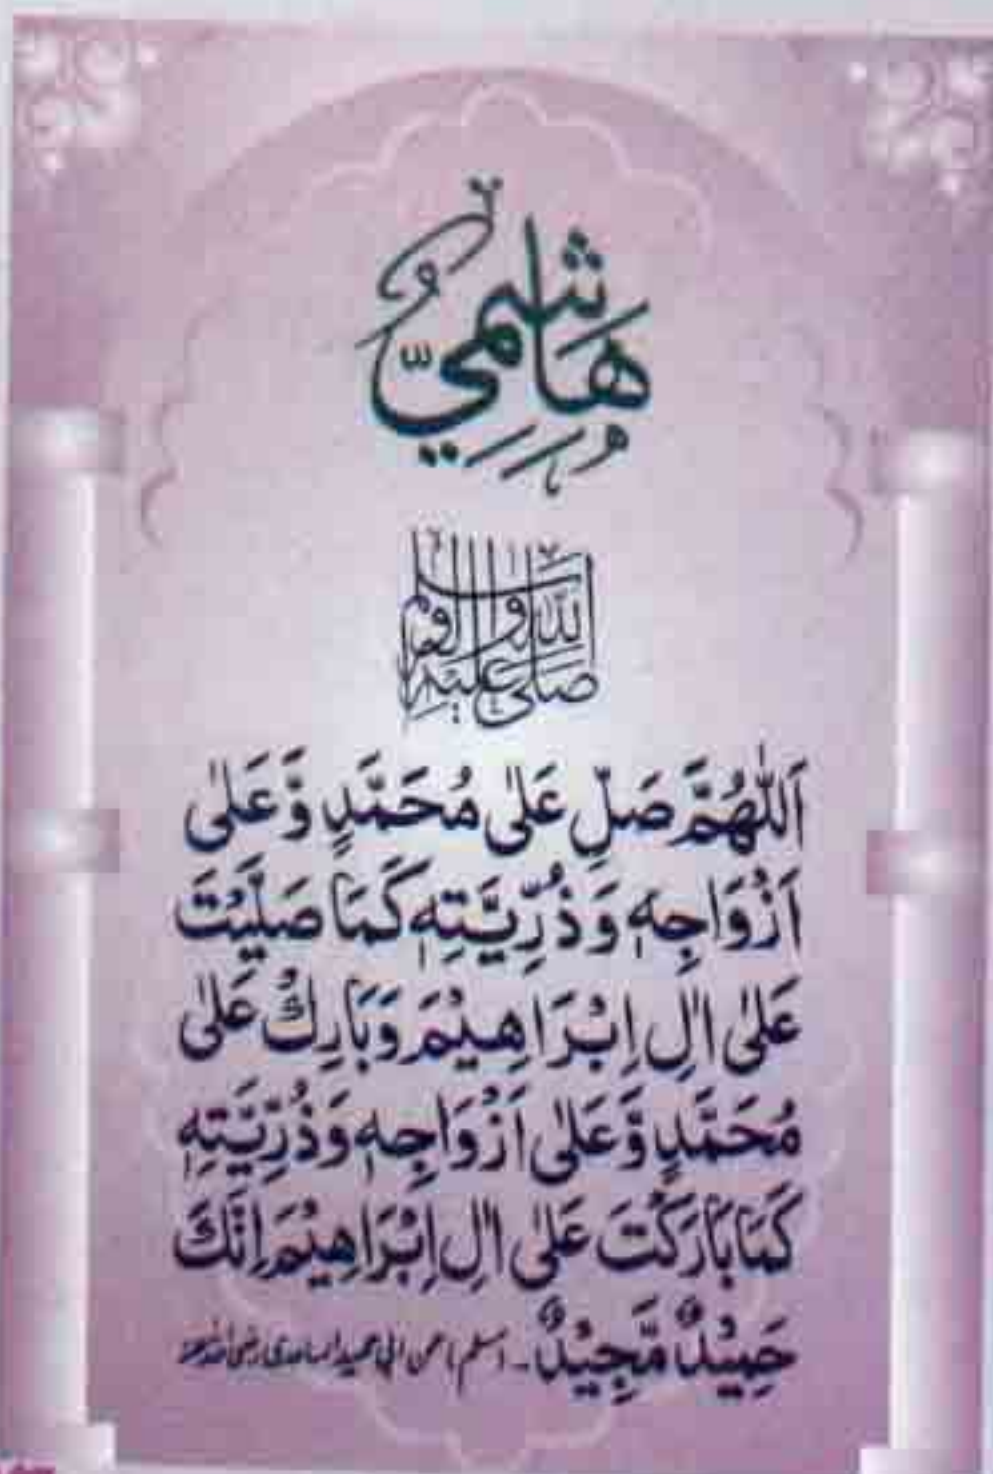 هَاشِمِيٌّ
صلى الله عليه واله وسلم
اَللّٰهُمَّ صَلِّ عَلٰى مُحَمَّدٍ وَّعَلٰى
اَزْوَاجِهٖ وَذُرِّيَّتِهٖ كَمَا صَلَّيْتَ
عَلٰى اٰلِ اِبْرَاهِيْمَ وَبَارِكْ عَلٰى
مُحَمَّدٍ وَّعَلٰى اَزْوَاجِهٖ وَذُرِّيَّتِهٖ
كَمَا بَارَكْتَ عَلٰى اٰلِ اِبْرَاهِيْمَ اِنَّكَ
حَمِيْدٌ مَّجِيْدٌ۔ (مسلم) عن ابی حمید الساعدی رضی اللہ عنہ